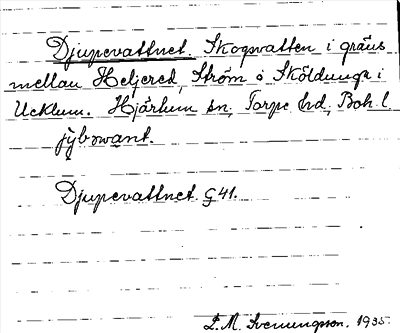 Djupevattnet. Skogsvatten i gräns
mellan Heljered, Ström o Sköldunga i
Ucklum. Hjärtum sn, Torpe hd, Boh. l.
jȳbəwant.
Djupevattnet G 41.
E. M. Svenungsson, 1935.